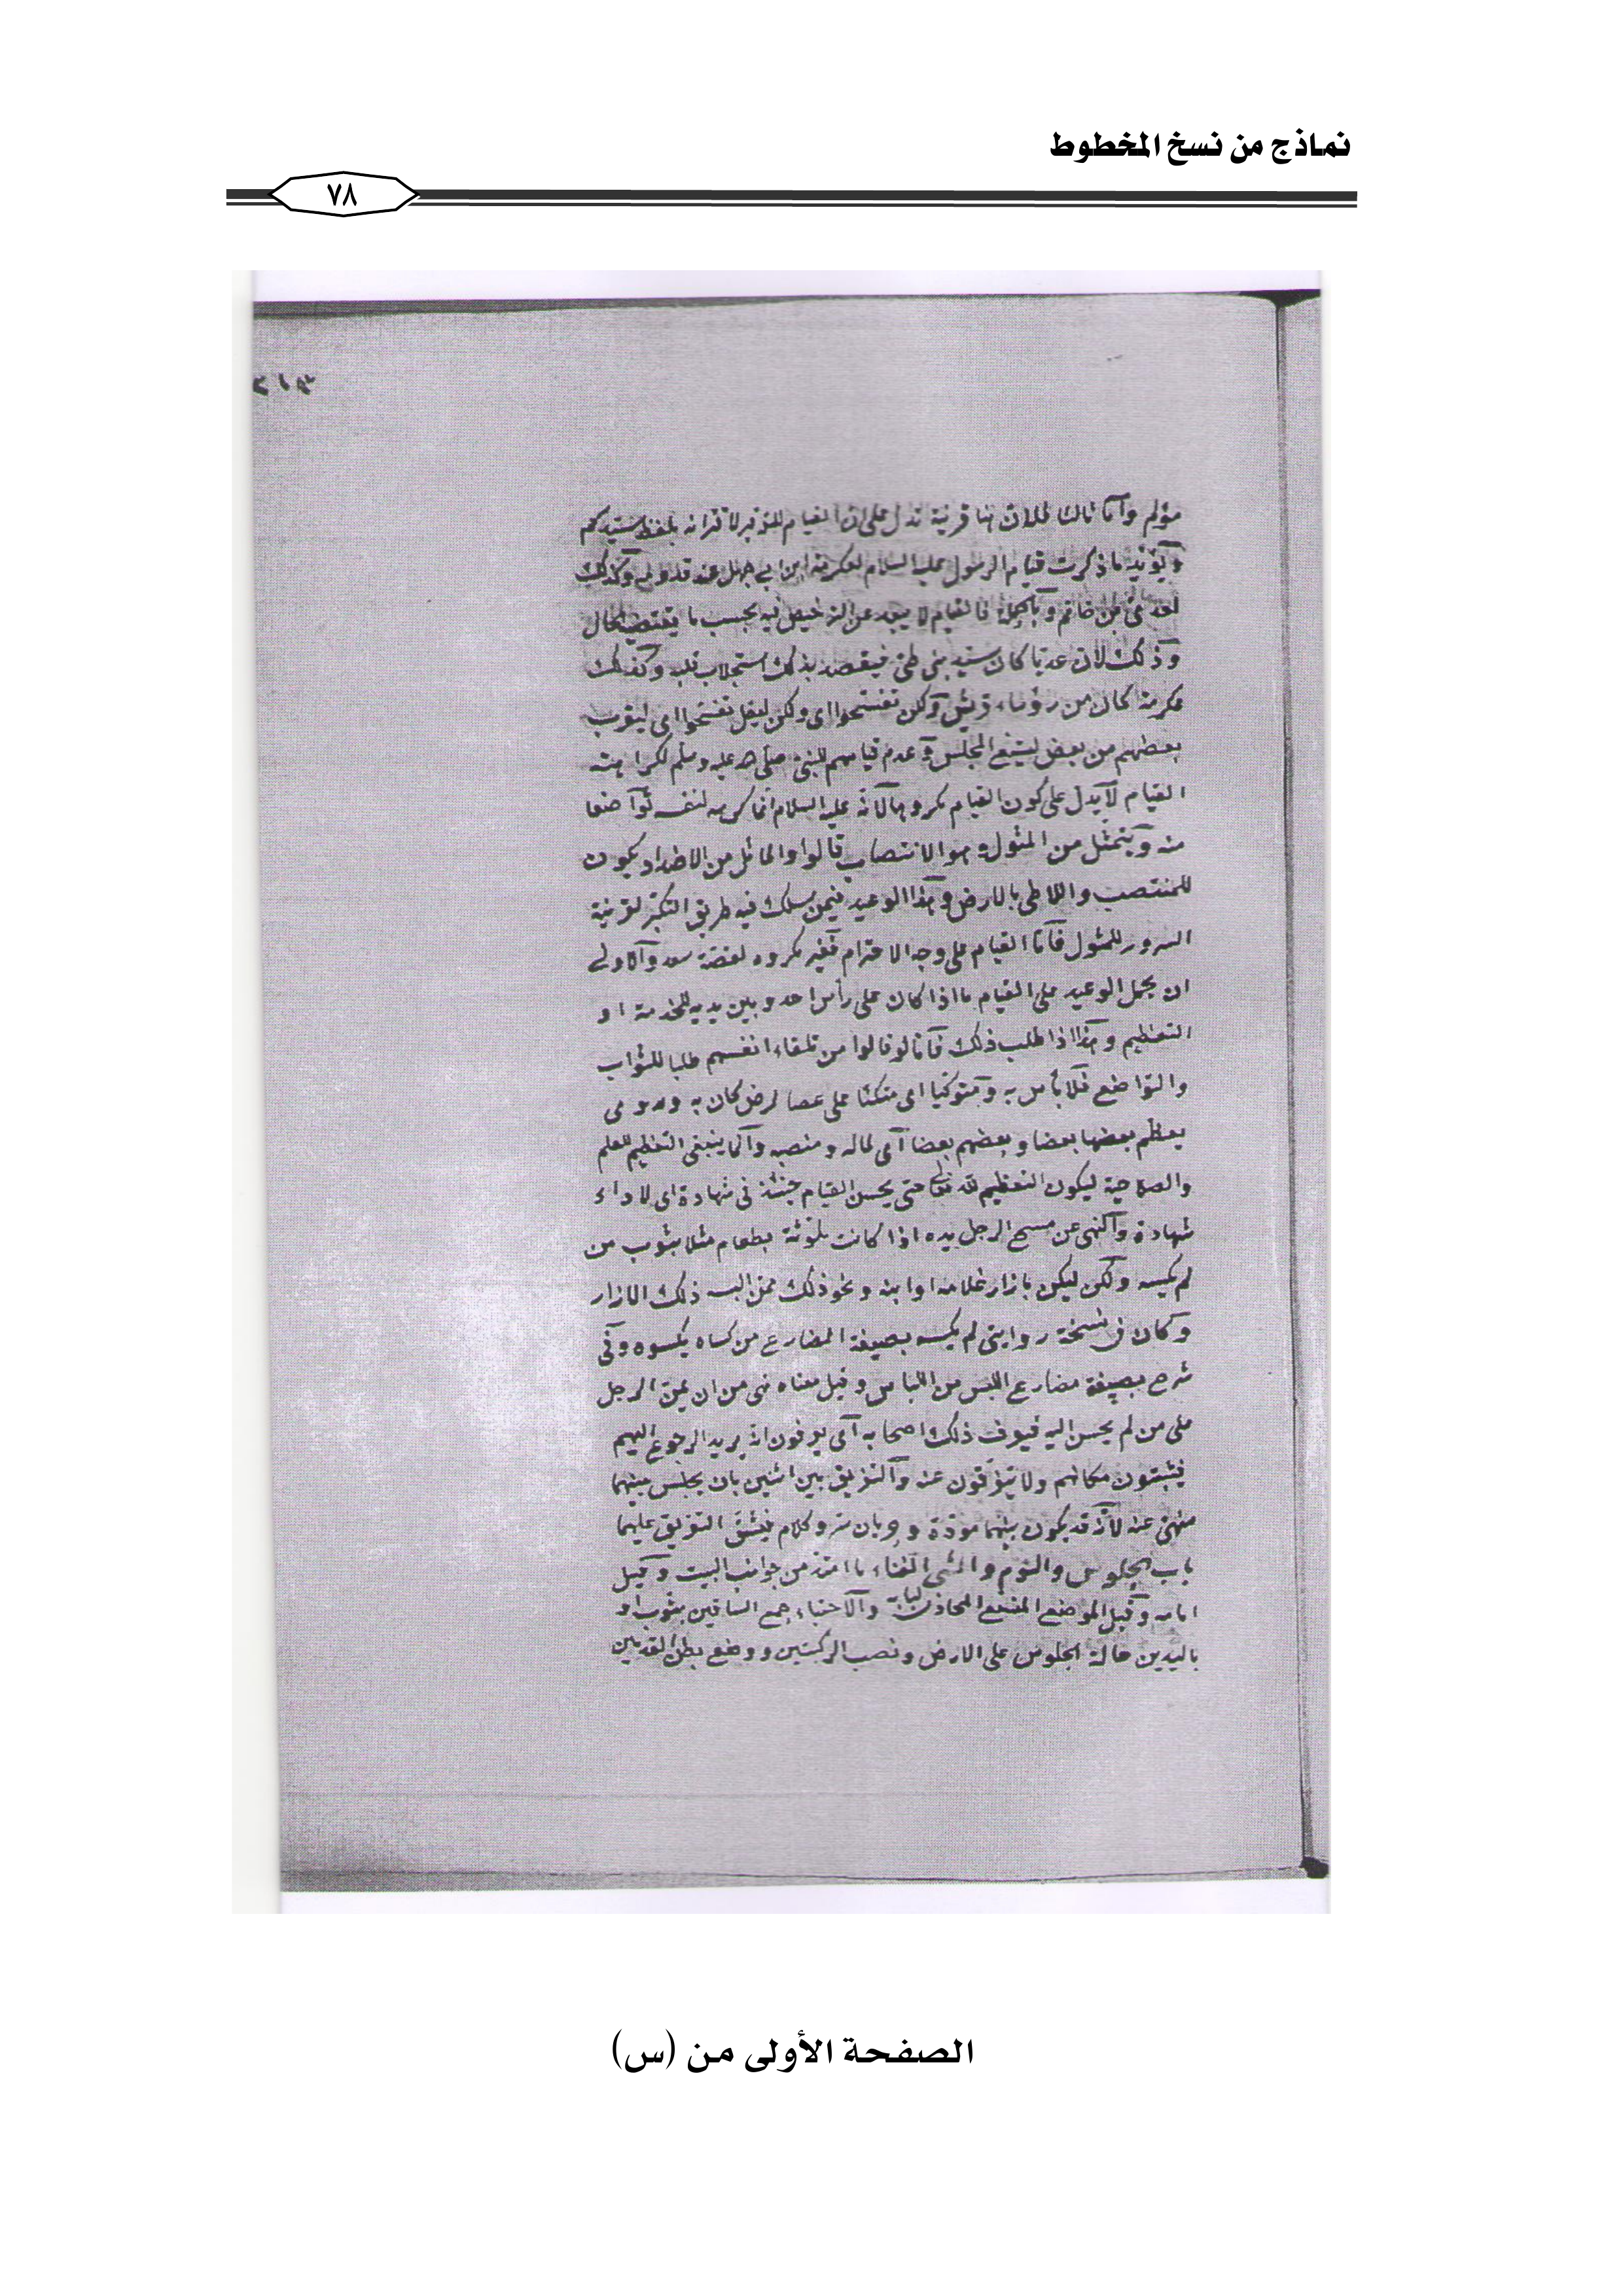 نماذج من نسخ المخطوط
٧٨
٢١٣
مؤلم وأما ثالثا فلان هنا قرينة تدل على ان القيام للتوقير لاقترانه بلفظ سيدكم
ويؤيد ما ذكرت قيام الرسول عليه السلام لعكرمة ابن ابي جهل عند قدومه وكذلك
لعدي بن حاتم وبالجملة فالقيام لا يبعد عن الترخيص فيه بحسب ما يقتضيه الحال
وذلك لان عديا كان سيد بني طي فيقصد بذلك استجلاب قلبه وكذلك
عكرمة كان من رؤساء قريش ولكن تفسحوا اى ولكن ليقل تفسحوا اى ليقرب
بعضهم من بعض ليتسع المجلس وعدم قيامهم للنبي صلى الله عليه وسلم لكراهته
القيام لا يدل على كون القيام مكروها لانه عليه السلام انما كرهه لنفسه تواضعا
منه ويتمثل من المثول وهو الانتصاب قالوا والماثل من الاضداد يكون
للمنتصب واللاطي بالارض وهذا الوعيد فيمن سلك فيه طريق التكبر لقرينة
السرور للمثول فاما القيام على وجه الاحترام فغير مكروه لقصة سعد والاولى
ان يحمل الوعيد على القيام ما اذا كان على رأس احد وبين يديه للخدمة او
التعظيم وهذا اذا طلب ذلك فاما لو قالوا من تلقاء انفسهم طلبا للثواب
والتواضع فلا بأس به ومتوكيا اى متكئا على عصا لمرض كان به
يعظم بعضها بعضا وبعضهم بعضا اى لماله ومنصبه وانما ينبغى التعظيم للعلم
والصلاحية ليكون التعظيم لله تعالى حتى يحسن القيام حينئذ في شهادة اى لاداء
شهادة والنهى عن مسح الرجل يده اذا كانت ملوثة بطعام مثلا بثوب من
لم يكسه ولكن ليكن بازار غلامه او ابنه ونحو ذلك ممن البسه ذلك الازار
وكان في نسخة روايتى لم يكسه بصيغة المضارع من كساه يكسوه وفى
شرح بصيغة مضارع اللبس من اللباس وقيل معناه نهى من ان يمن الرجل
على من لم يحسن اليه فيعرف ذلك اصحابه اى يعرفون انه يريد الرجوع اليهم
فيثبتون مكانهم ولا يتفرقون عنه والتفريق بين اثنين بان يجلس بينهما
منهى عنه لانه قد يكون بينهما مودة وجريان سر وكلام فيشق التفريق عليهما
باب الجلوس والنوم والمشى الفناء ما امتد من جوانب البيت وقيل
امامه وقيل الموضع المتسع المحاذى لبابه والاحتباء جمع الساقين بثوب او
باليدين حالة الجلوس على الارض ونصب الركبتين ووضع بطن القدمين
الصفحة الأولى من (س)